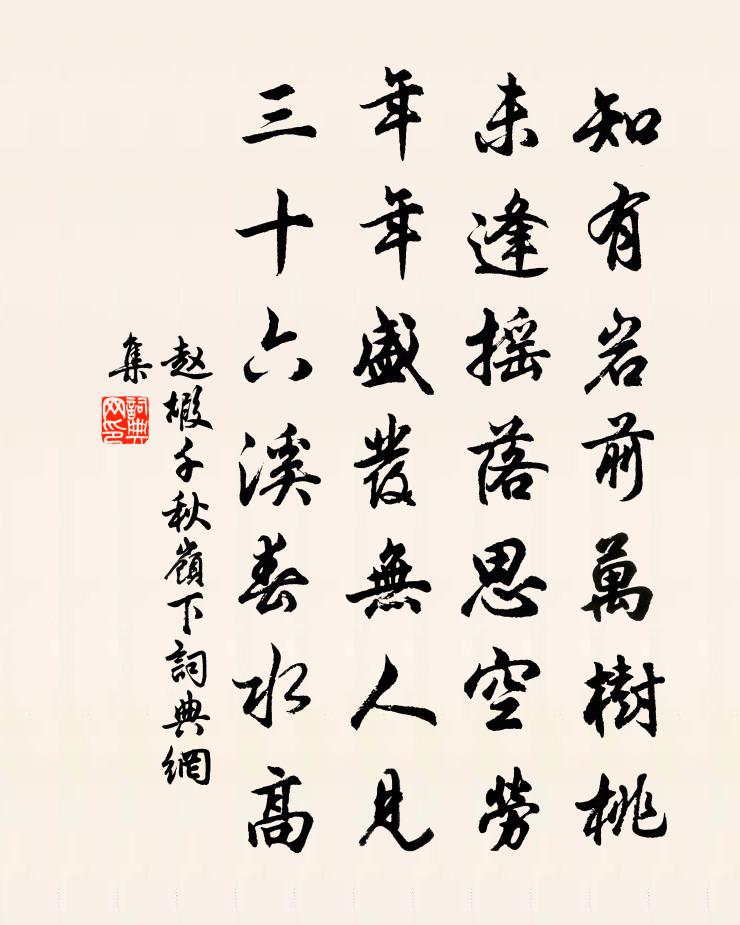 知有岩前萬樹桃
未逢摇落思空勞
年年盛發無人見
三十六溪春水高
赵嘏千秋嶺下詞典網
集
詞典
网印